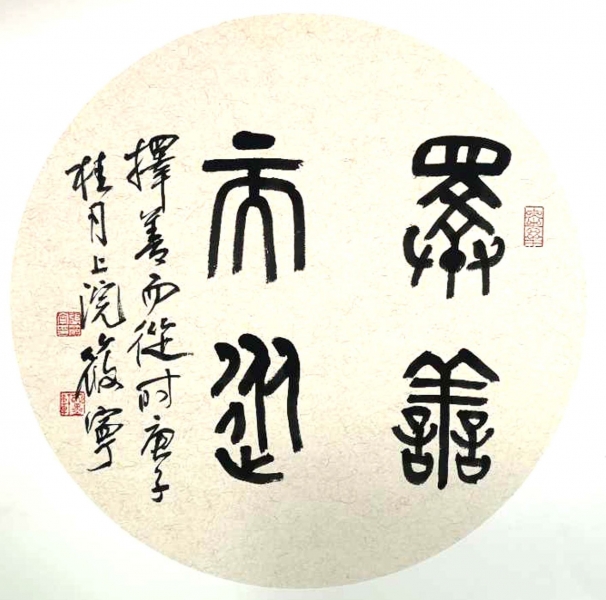 擇善
而從
擇善而從时庚子
桂月上浣筱寧